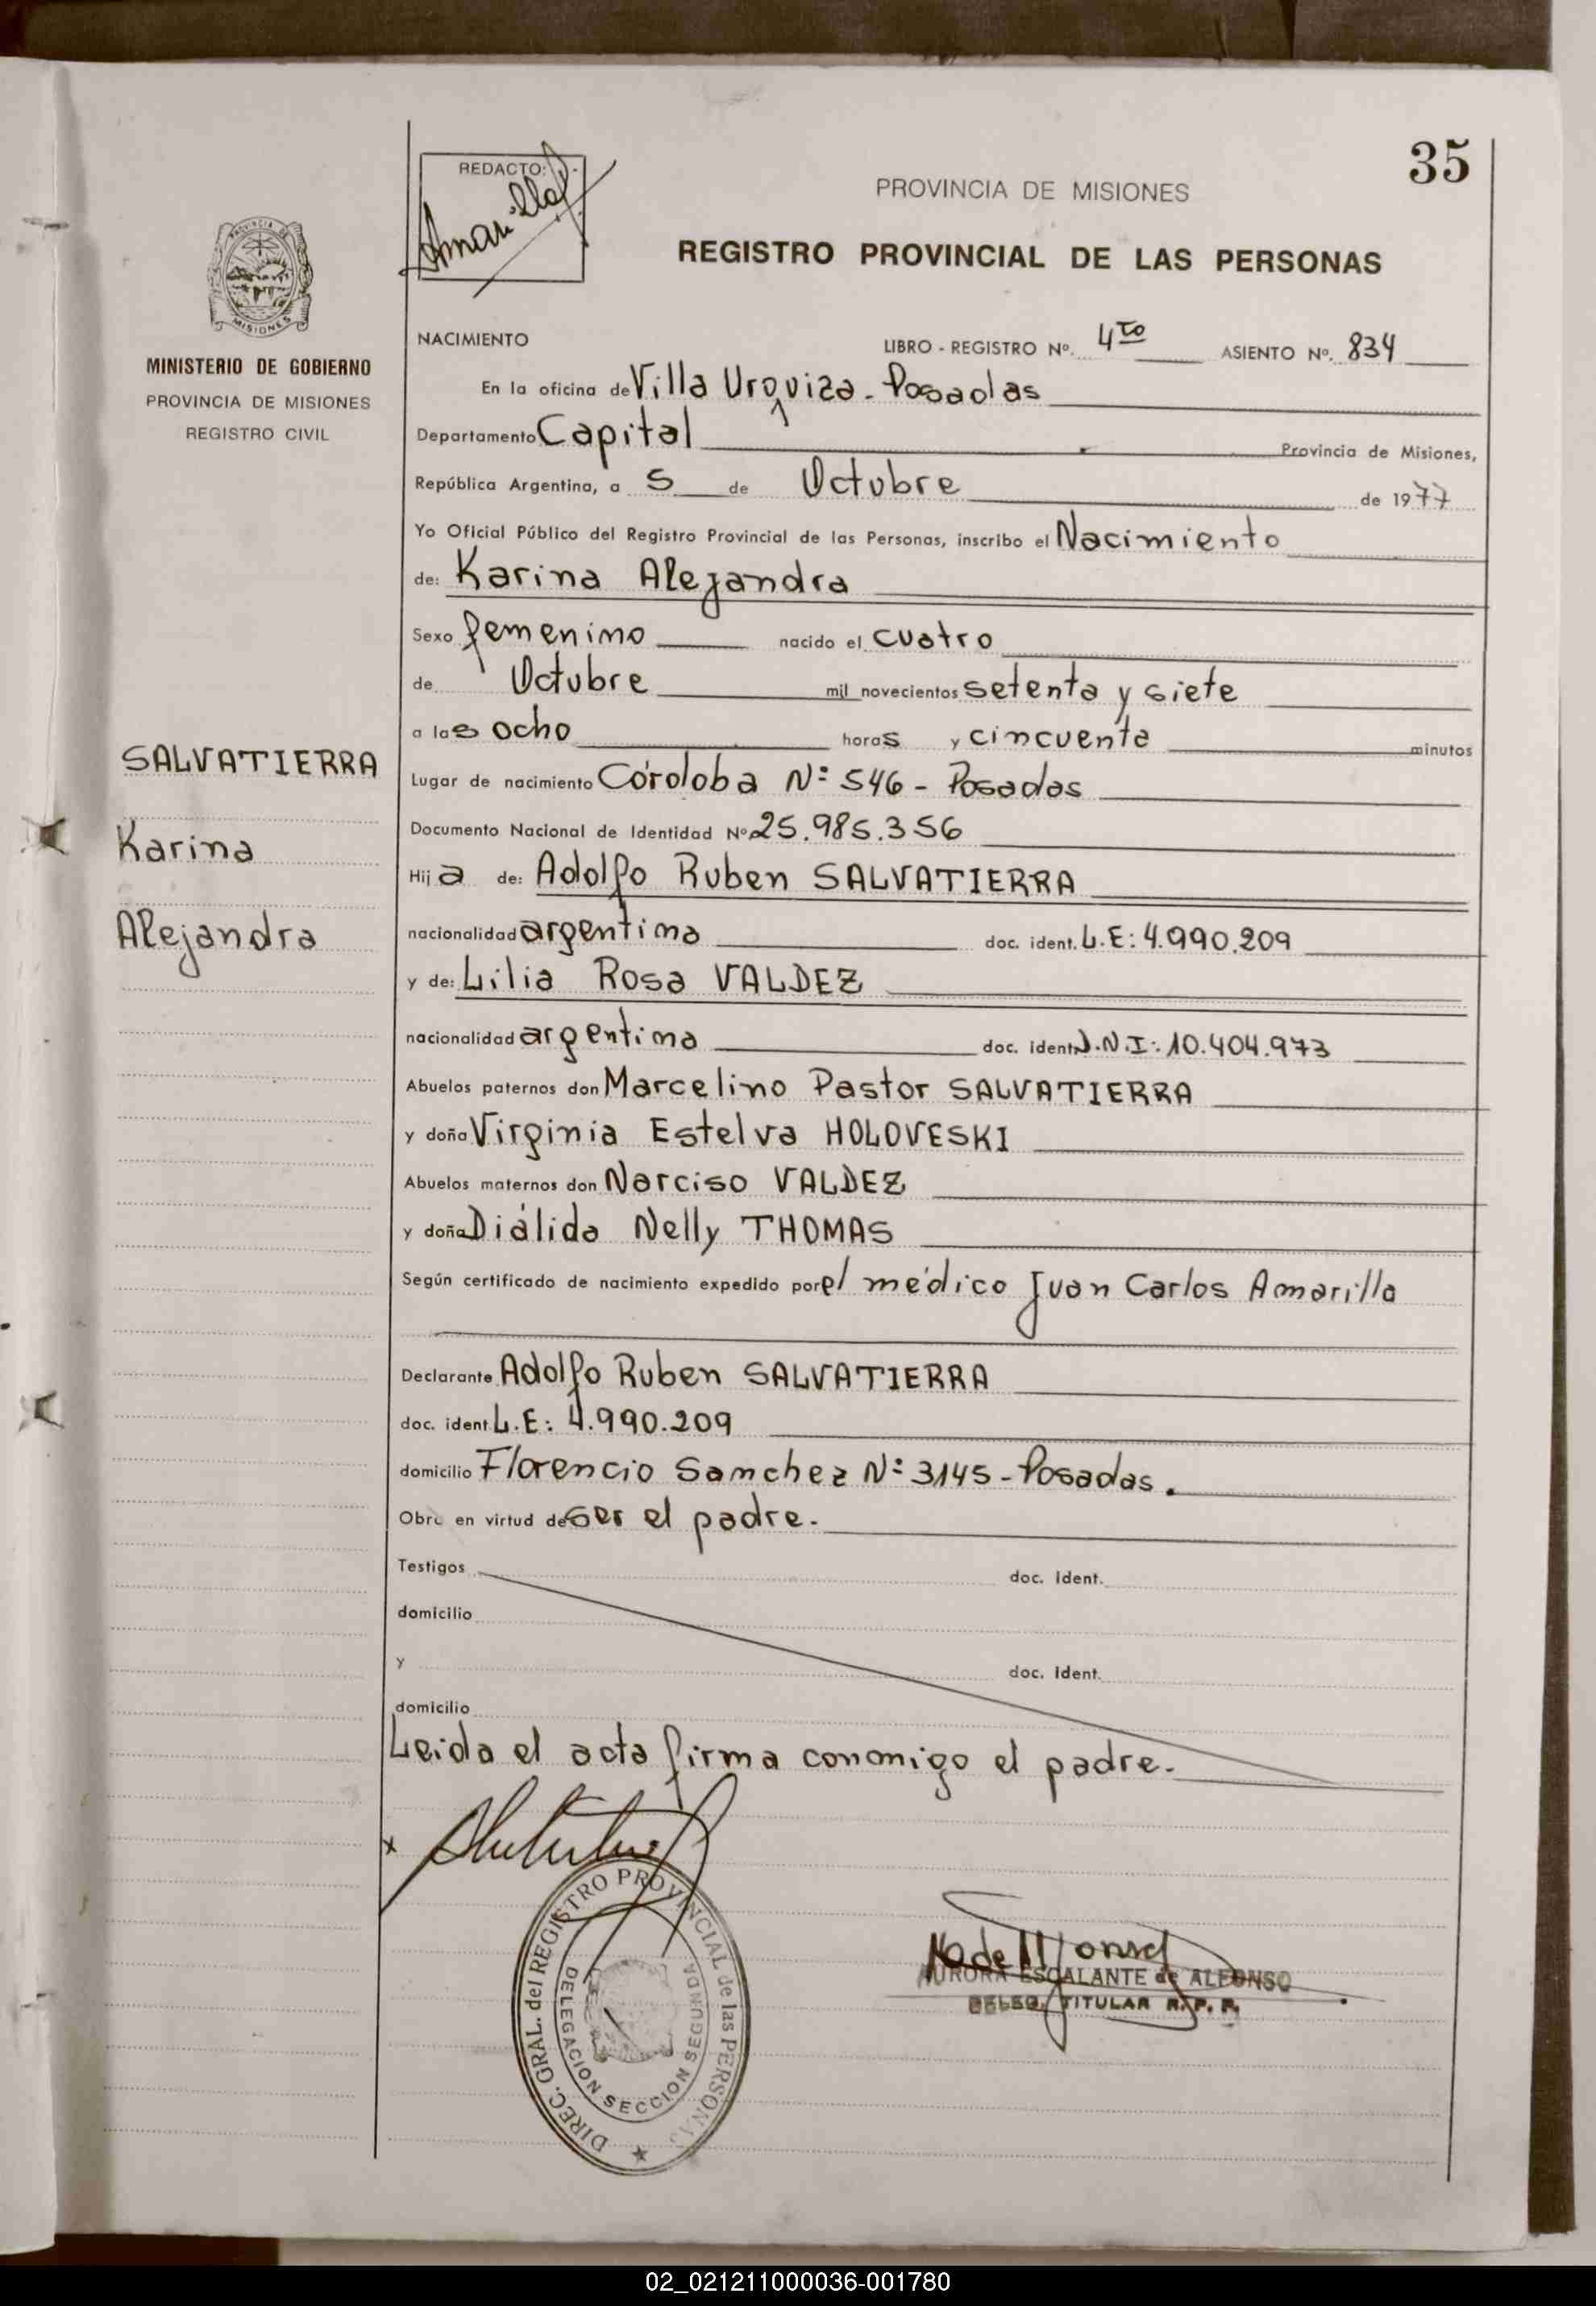 35
REDACTO:
Amarilla
PROVINCIA DE MISIONES
REGISTRO PROVINCIAL DE LAS PERSONAS
PROVINCIA DE MISIONES
MINISTERIO DE GOBIERNO
PROVINCIA DE MISIONES
REGISTRO CIVIL
NACIMIENTO LIBRO - REGISTRO Nº. 4to ASIENTO Nº. 834
En la oficina de Villa Urquiza - Posadas
Departamento Capital Provincia de Misiones,
República Argentina, a 5 de Octubre de 1977
Yo Oficial Público del Registro Provincial de las Personas, inscribo el Nacimiento
de: Karina Alejandra
Sexo femenino nacido el cuatro
de Octubre mil novecientos setenta y siete
a las ocho horas y cincuenta minutos
SALVATIERRA
Karina
Alejandra
Lugar de nacimiento Córdoba Nº 546 - Posadas
Documento Nacional de Identidad Nº 25.985.356
Hija de: Adolfo Ruben SALVATIERRA
nacionalidad argentina doc. ident. L.E: 4.990.209
y de: Lilia Rosa VALDEZ
nacionalidad argentina doc. ident. D.N.I: 10.404.973
Abuelos paternos don Marcelino Pastor SALVATIERRA
y doña Virginia Estelva HOLOVESKI
Abuelos maternos don Narciso VALDEZ
y doña Diálida Nelly THOMAS
Según certificado de nacimiento expedido por el médico Juan Carlos Amarilla
Declarante Adolfo Ruben SALVATIERRA
doc. ident L.E: 4.990.209
domicilio Florencio Sanchez Nº 3145 - Posadas.
Obra en virtud de ser el padre.
Testigos doc. ident.
domicilio
y doc. ident.
domicilio
Leida el acta firma conmigo el padre.
x
DIREC. GRAL. del REGISTRO PROVINCIAL de las PERSONAS
DELEGACION SECCION SEGUNDA
AURORA ESCALANTE de ALFONSO
DELEG. TITULAR R. P. P.
02_021211000036-001780